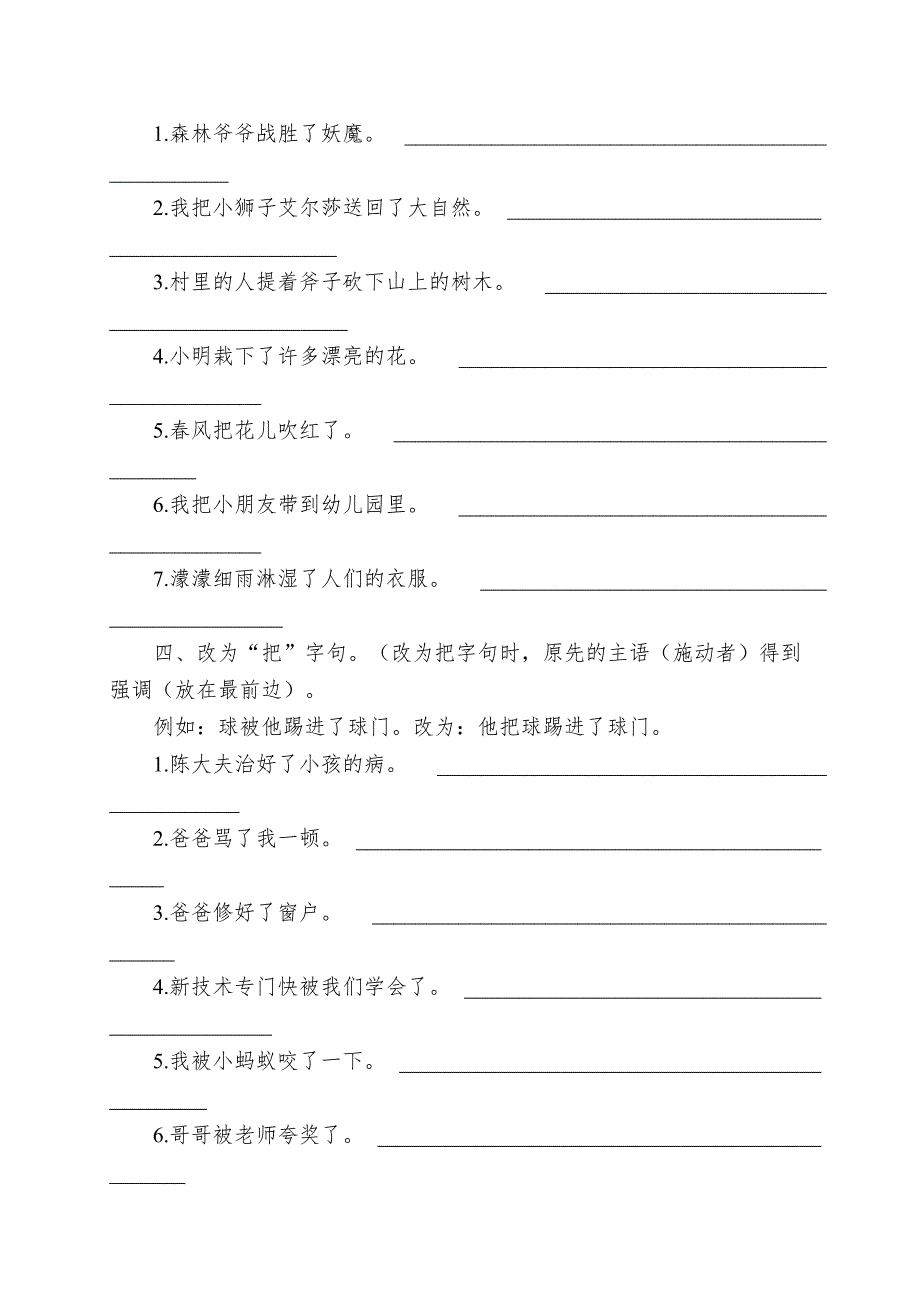 1.森林爷爷战胜了妖魔。 ________________________________________
___________
2.我把小狮子艾尔莎送回了大自然。 ______________________________
_____________________
3.村里的人提着斧子砍下山上的树木。 __________________________
______________________
4.小明栽下了许多漂亮的花。 __________________________________
______________
5.春风把花儿吹红了。 ________________________________________
________
6.我把小朋友带到幼儿园里。 __________________________________
______________
7.濛濛细雨淋湿了人们的衣服。 ________________________________
________________
四、改为“把”字句。（改为把字句时，原先的主语（施动者）得到
强调（放在最前边）。
例如：球被他踢进了球门。改为：他把球踢进了球门。
1.陈大夫治好了小孩的病。 ____________________________________
____________
2.爸爸骂了我一顿。 ___________________________________________
_____
3.爸爸修好了窗户。 __________________________________________
______
4.新技术专门快被我们学会了。 _________________________________
_______________
5.我被小蚂蚁咬了一下。 _______________________________________
_________
6.哥哥被老师夸奖了。 _________________________________________
_______